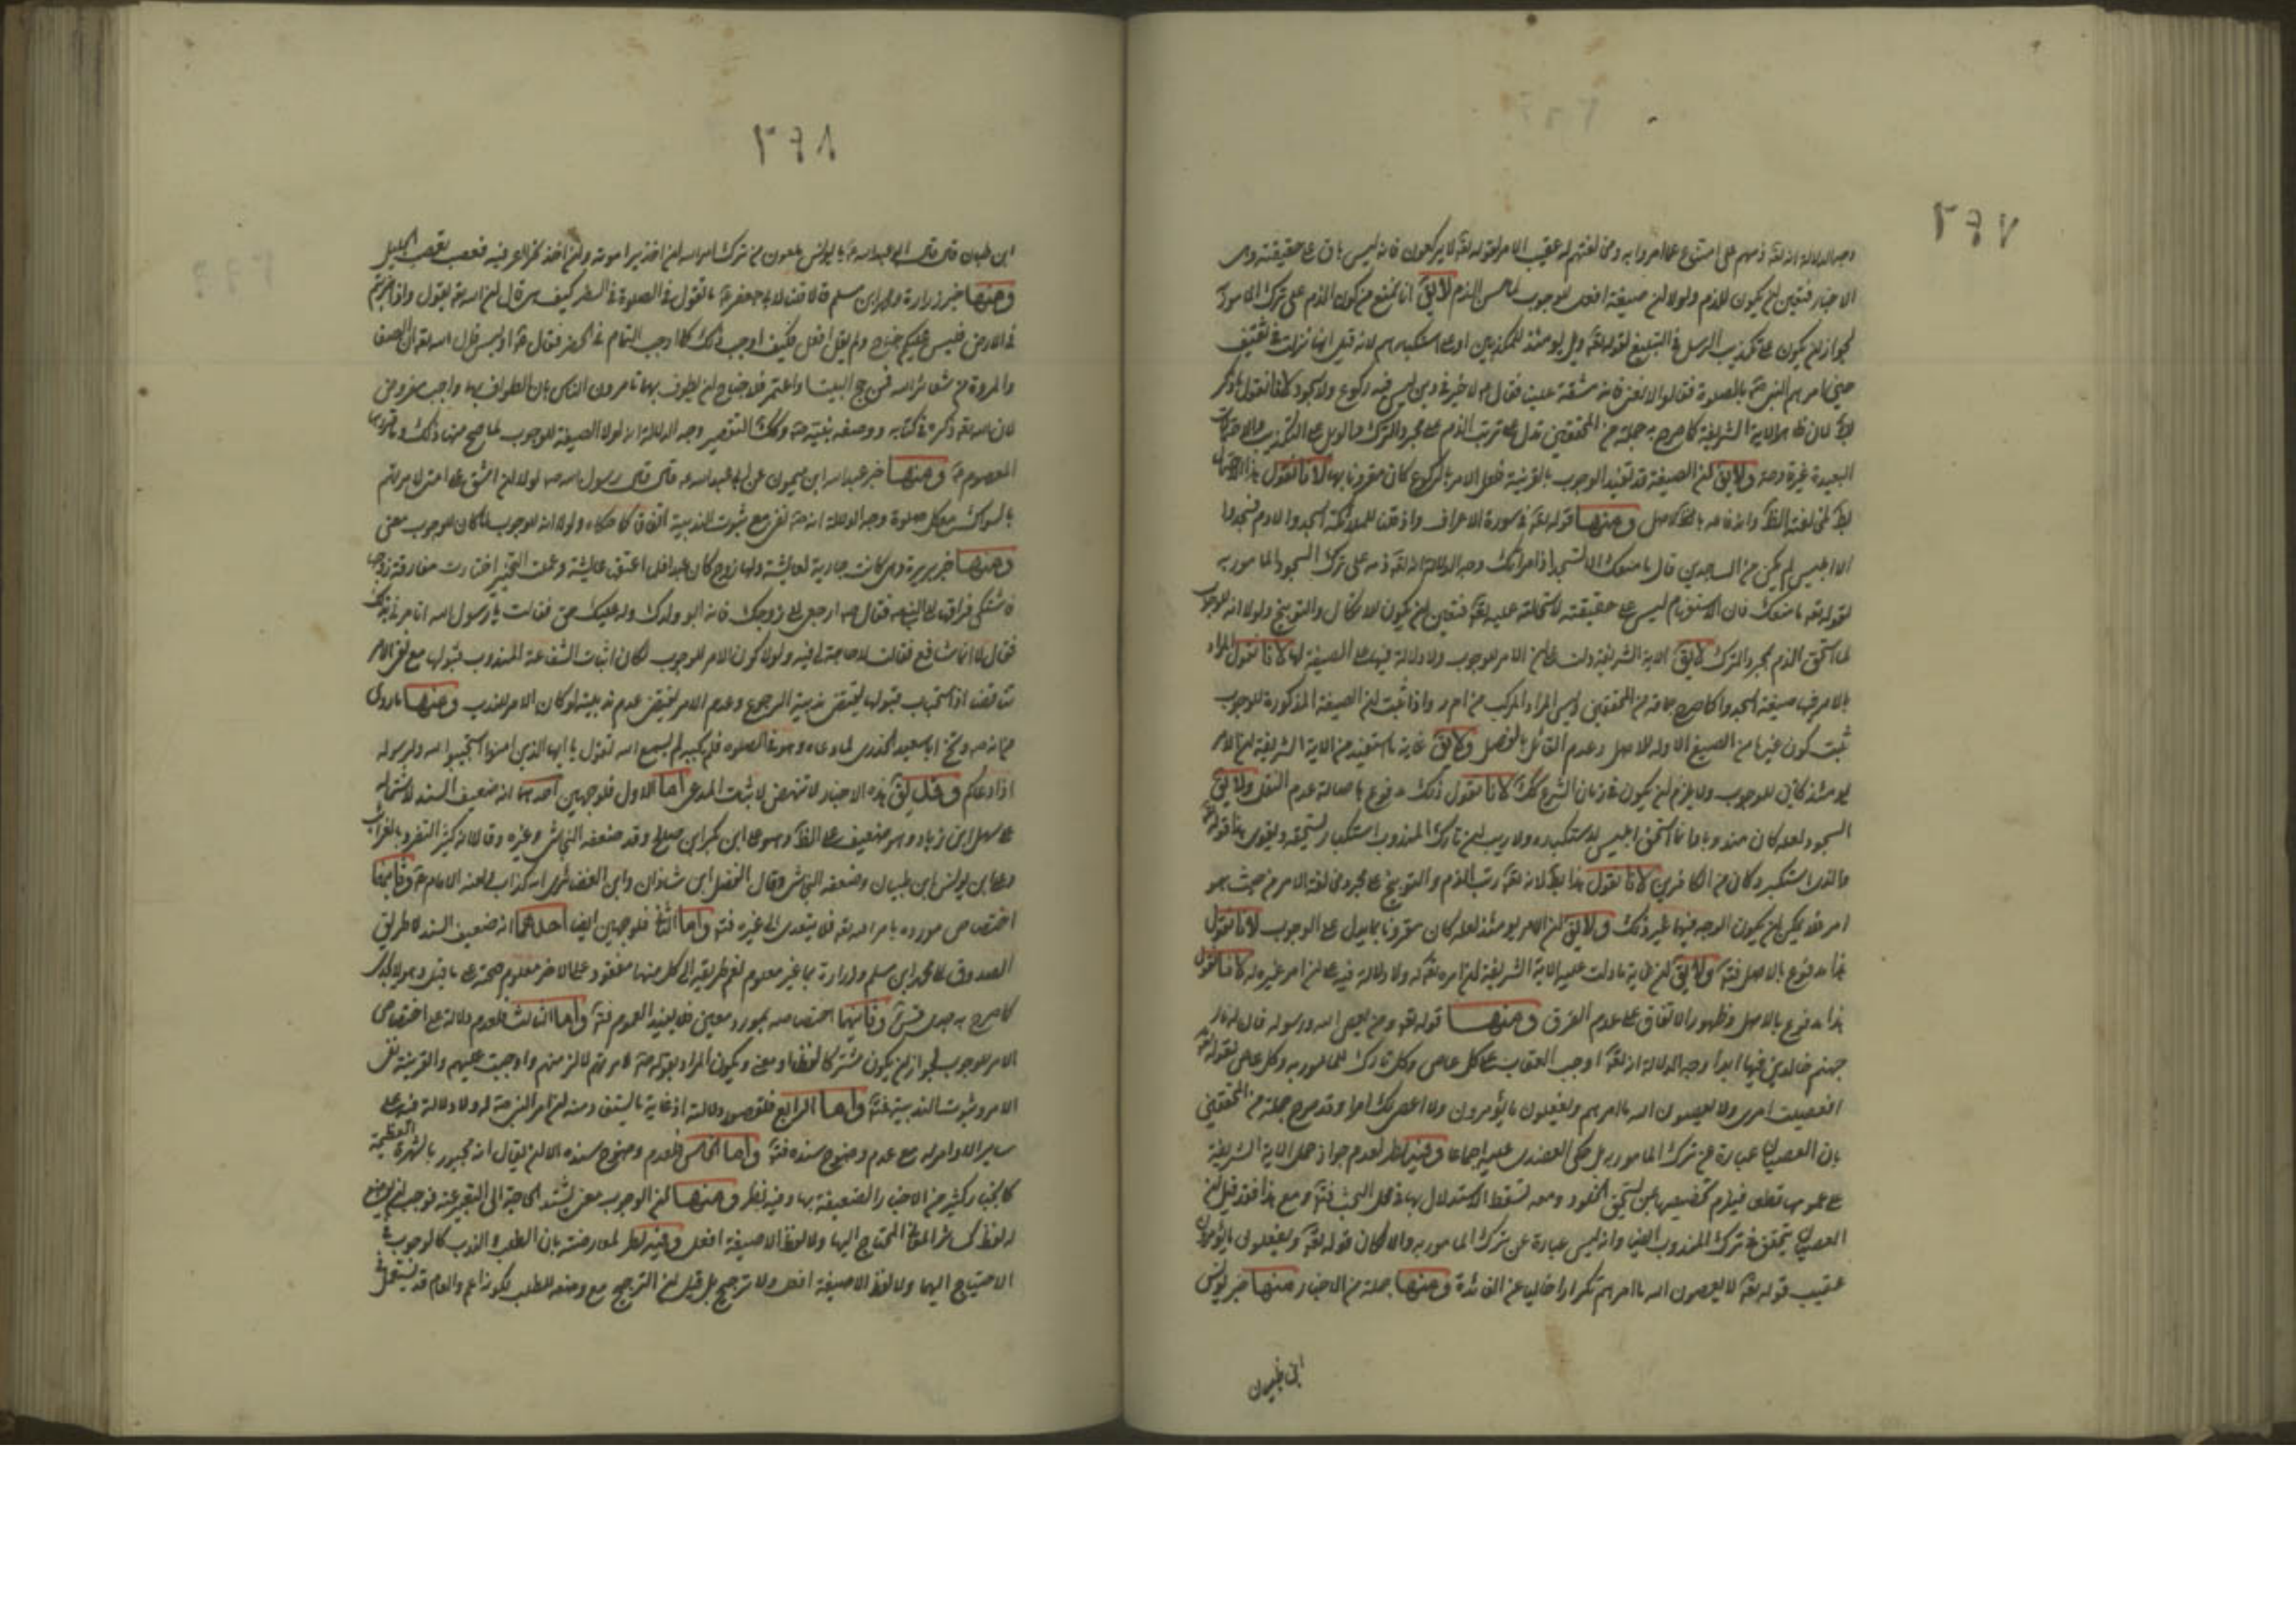 ٢٩٧
وجه الدلالة انه تعالى ذمهم على امتناع ما امروا به ومخالفتهم له عقيب الامر بقوله تعالى لا يركعون فانه ليس باق على حقيقته وهى
الاخبار فتعين ان يكون للذم ولولا ان صيغة افعل للوجوب لما حسن الذم لا يق انا نمنع من كون الذم على ترك المامور به
لجواز ان يكون على تكذيب الرسل فى التبليغ لقوله تعالى ويل يومئذ للمكذبين او على استكبارهم لانه قيل انها نزلت فى ثقيف
حين امرهم النبى ص بالصلوة فقالوا لا ننحنى فانه مشقة علينا فقال ص لا خير فى دين ليس فيه ركوع ولا سجود لانا نقول ما ذكر
بط لان ظاهر الآية الشريفة كما صرح به جملة من المحققين تدل على ترتب الذم على مجرد الترك والويل على التكذيب والاحتمالات
البعيدة غير قادحة ولا يق ان الصيغة قد تفيد الوجوب بالقرينة فلعل الامر بالركوع كان مقرونا بها لانا نقول هذا الاحتمال
بط لمخالفة الظ واندفاعه بالاصل ومنها قوله تعالى فى سورة الاعراف واذ قلنا للملائكة اسجدوا لادم فسجدوا
الا ابليس لم يكن من الساجدين قال ما منعك الا تسجد اذ امرتك وجه الدلالة انه تعالى ذمه على ترك السجود المامور به
لقوله تعالى ما منعك فان الاستفهام ليس على حقيقته لاستحالته عليه تعالى فتعين ان يكون للانكار والتوبيخ ولولا انه للوجوب
لما استحق الذم بمجرد الترك لا يق الآية الشريفة دلت على ان الامر للوجوب ولا دلالة فيها على الصيغة لها لانا نقول المراد
بالامر فيها صيغة اسجدوا كما صرح به جماعة من المحققين وليس المراد المركب من ا م ر واذا ثبت ان الصيغة المذكورة للوجوب
ثبت كون غيرها من الصيغ الاولة للاصل وعدم القائل بالفصل ولا يق غاية ما يستفيد من الآية الشريفة ان الامر
يومئذ كان للوجوب ولا يلزم ان يكون فى زمان الشرع كك لانا نقول ذلك مدفوع باصالة عدم النقل ولا يق
السجود لعله كان مندوبا وانما استحق ابليس لاستكباره ولا ريب ان تارك المندوب استكبارا يستحقه ويقوى هذا قوله تعالى
ما لذى استكبر وكان من الكافرين لانا نقول هذا بط لانه تعالى رتب الذم والتوبيخ على مجرد مخالفة الامر من حيث هو
امر فقد يمكن ان يكون الوجه فيها غير ذلك ولا يق ان الامر يومئذ لعله كان مقرونا بما يدل على الوجوب لانا نقول
هذا مدفوع بالاصل فت ولا يق ان غاية ما دلت عليه الآية الشريفة ان امره تعالى له ولا دلالة فيه على ان امر غيره له لانا نقول
هذا مدفوع بالاصل وظهور الاتفاق على عدم الفرق ومنها قوله تعالى ومن يعص الله ورسوله فان له نار
جهنم خالدين فيها ابدا وجه الدلالة انه تعالى اوجب العقاب على كل عاص وكل تارك للمامور به وكل عاص لقوله تعالى
افعصيت امرى ولا يعصون الله ما امرهم ويفعلون ما يؤمرون ولا اعصى لك امرا وقد صرح جملة من المحققين
بان العصيان عبارة عن ترك المامور به بل حكى العضدى عليه اجماعا وفيه نظر لعدم جواز حمل الآية الشريفة
على عمومها قطعا فيلزم تخصيصها بمن يستحق الخلود ومعه تسقط الاستدلال بها فى محل البحث فت ومع هذا فقد قيل ان
العصيان يتحقق فى ترك المندوب ايضا وانه ليس عبارة عن ترك المامور به والا لكان قوله تعالى ويفعلون ما يؤمرون
عقيب قوله تعالى لا يعصون الله ما امرهم تكرارا خاليا عن الفائدة ومنها جملة من الاخبار منها خبر يونس
ابن ظبيان
٢٩٨
ابن ظبيان قال قال ابى عبد الله ع يا يونس ملعون من ترك
ومنها خبر زرارة ومحمد ابن مسلم قالا قلنا لابى جعفر ع ما تقول فى الصلوة فى السفر كيف هى قال ان الله تعالى يقول واذا ضربتم
فى الارض فليس عليكم جناح ولم يقل افعل فكيف اوجب ذلك كما اوجب التمام فى الحضر فقال ع او ليس قال الله تعالى ان الصفا
والمروة من شعائر الله فمن حج البيت او اعتمر فلا جناح ان يطوف بهما تامرون الناس بان الطواف بهما واجب مفروض
لان الله تعالى ذكره فى كتابه ووصفه نبيه ص وكك التقصير وجه الدلالة انه لولا الصيغة للوجوب لما صح منهما ذلك وتقريرهما
المعصوم ع ومنها خبر عبد الله ابن ميمون عن ابى عبد الله ع قال قال رسول الله ص لولا ان اشق على امتى لامرتهم
بالسواك مع كل صلوة وجه الدلالة انه ص نفى مع ثبوت الندبية اتفاقا كما حكاه ولولا انه للوجوب لما كان للوجوب معنى
ومنها خبر بريرة وهى كانت جارية لعايشة ولها زوج كان عبدا فلما اعتق عايشة وعلمت التخيير اختارت مفارقة زوجها
فاشتكى فراقها الى النبى ص فقال ص ارجعى الى زوجك فانه ابو ولدك وله عليك حق فقالت يا رسول الله اتامرنى بذلك
فقال لا انما شافع فقالت لا حاجة لى فيه ولولا كون الامر للوجوب لكان اثبات الشفاعة المندوب قبولها مع نفى الامر
تناقضا اذ استحباب قبولها يقتضى ندبية الرجوع وعدم الامر يقتضى عدم ندبيته لو كان الامر للندب ومنها ما روى
من انه ص وبخ ابا سعيد الخدرى لما دعاه وهو فى الصلوة فلم يجبه الم يسمع الله تقول يا ايها الذين امنوا استجيبوا لله ولرسوله
اذا دعاكم وقد يق هذه الاخبار لا تنهض لاثبات المدعى اما الاول فلوجهين احدهما انه ضعيف السند لاشتماله
على سهل ابن زياد وهو ضعيف على الظ وهو على ابن بكر ابن صالح وقد ضعفه النجاشى وغيره وقالا انه كثير التفرد بالغرائب
وعلى ابن يونس ابن ظبيان وضعفه النجاشى وقال الفضل ابن شاذان وابن الغضائرى انه كذاب ولعنه الامام ع وثانيهما
اختصاص مورده بامر الله تعالى فلا يتعدى الى غيره فت واما الثانى فلوجهين ايضا احدهما انه ضعيف السند لان طريق
الصدوق الى محمد ابن مسلم وزرارة بما غير معلوم نعم طريقه الى كل منهما مفقود على الاخر معلوم صحته على ما قيل وهو لا يجدى
كما صرح به جدى قدس سره وثانيهما اختصاصه بمورد معين فلا يفيد العموم فت واما الثالث فلعدم دلالة على اختصاص
الامر للوجوب لجواز ان يكون مشتركا لفظا ومعنى ويكون المراد بقوله ص لامرتهم لالزمتهم واوجبت عليهم والقرينة نفى
الامر وثبوت الندبية فت واما الرابع فلقصور دلالة اذ غاية ما يستفاد منه ان امر النبى ص له ولا دلالة فيه على
ساير الاوامر له مع عدم وضوح سنده فت واما الخامس فلعدم وضوح سنده الا ان يقال انه مجبور بالشهرة العظيمة
كانجبار كثير من الاخبار الضعيفة بها وفيه نظر ومنها ان الوجوب معنى يشتد الحاجة الى التعبير عنه فوجب ان يوضع
له لفظ كسائر المعانى المحتاج اليها ولا لفظ الا صيغة افعل وفيه نظر لمعارضته بان الطلب والندب كالوجوب فى
الاحتياج اليهما ولا لفظ الا صيغة افعل ولا ترجيح بل قيل ان الترجيح مع وضعه للطلب لكونه اعم والعام قد يستعمل فى